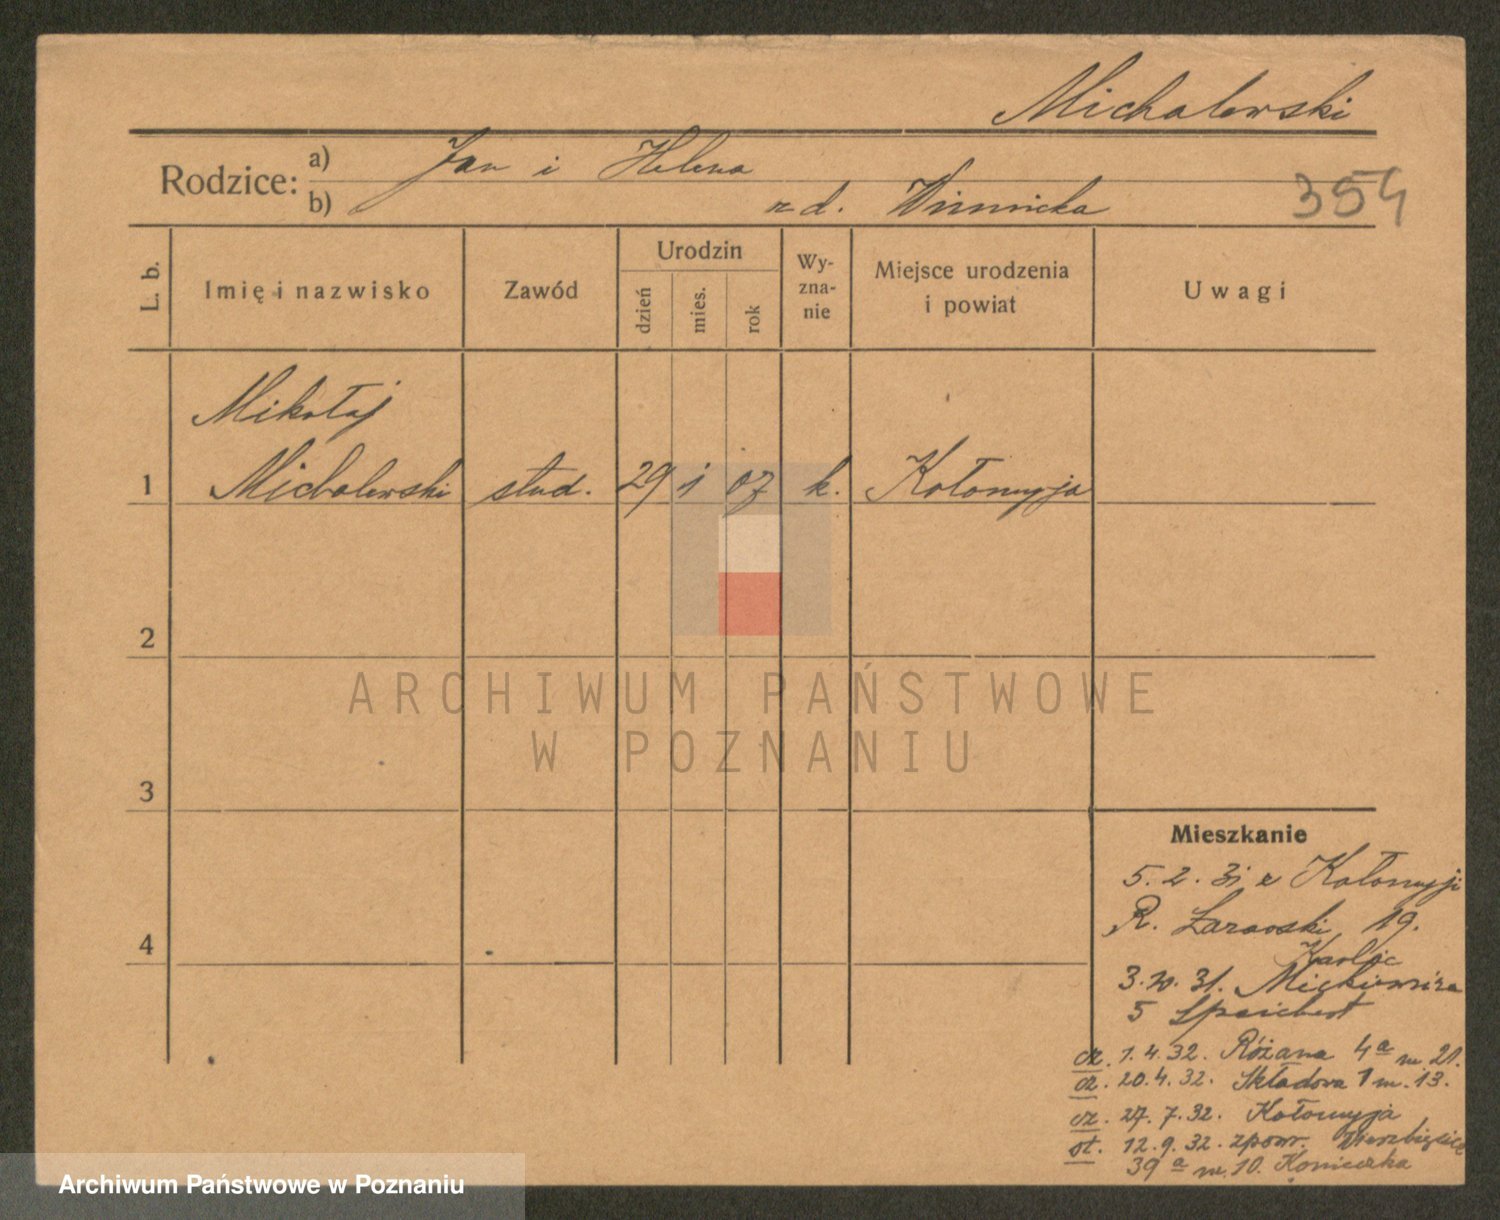 Michalewski
Rodzice: a) Jan i Helena
b) z d. Winnicka
354
L. b.
Imię i nazwisko
Zawód
Urodzin
dzień
mies.
rok
Wy-
zna-
nie
Miejsce urodzenia
i powiat
Uwagi
Mikołaj
1 Michalewski stud. 29 1 07 k. Kołomyja
2
3
4
ARCHIWUM PAŃSTWOWE
W POZNANIU
Mieszkanie
5. 2. 31 z Kołomyji
R. 19.
3. 31. Mickiewicza
5 Speichert
1. 4. 32. Różana 4a m. 21.
20. 4. 32. Składowa 1 m. 13.
27. 7. 32. Kołomyja
ot. 12. 9. 32. zpowr. Wierzbięcice
39a m. 10. Konieczka
Archiwum Państwowe w Poznaniu